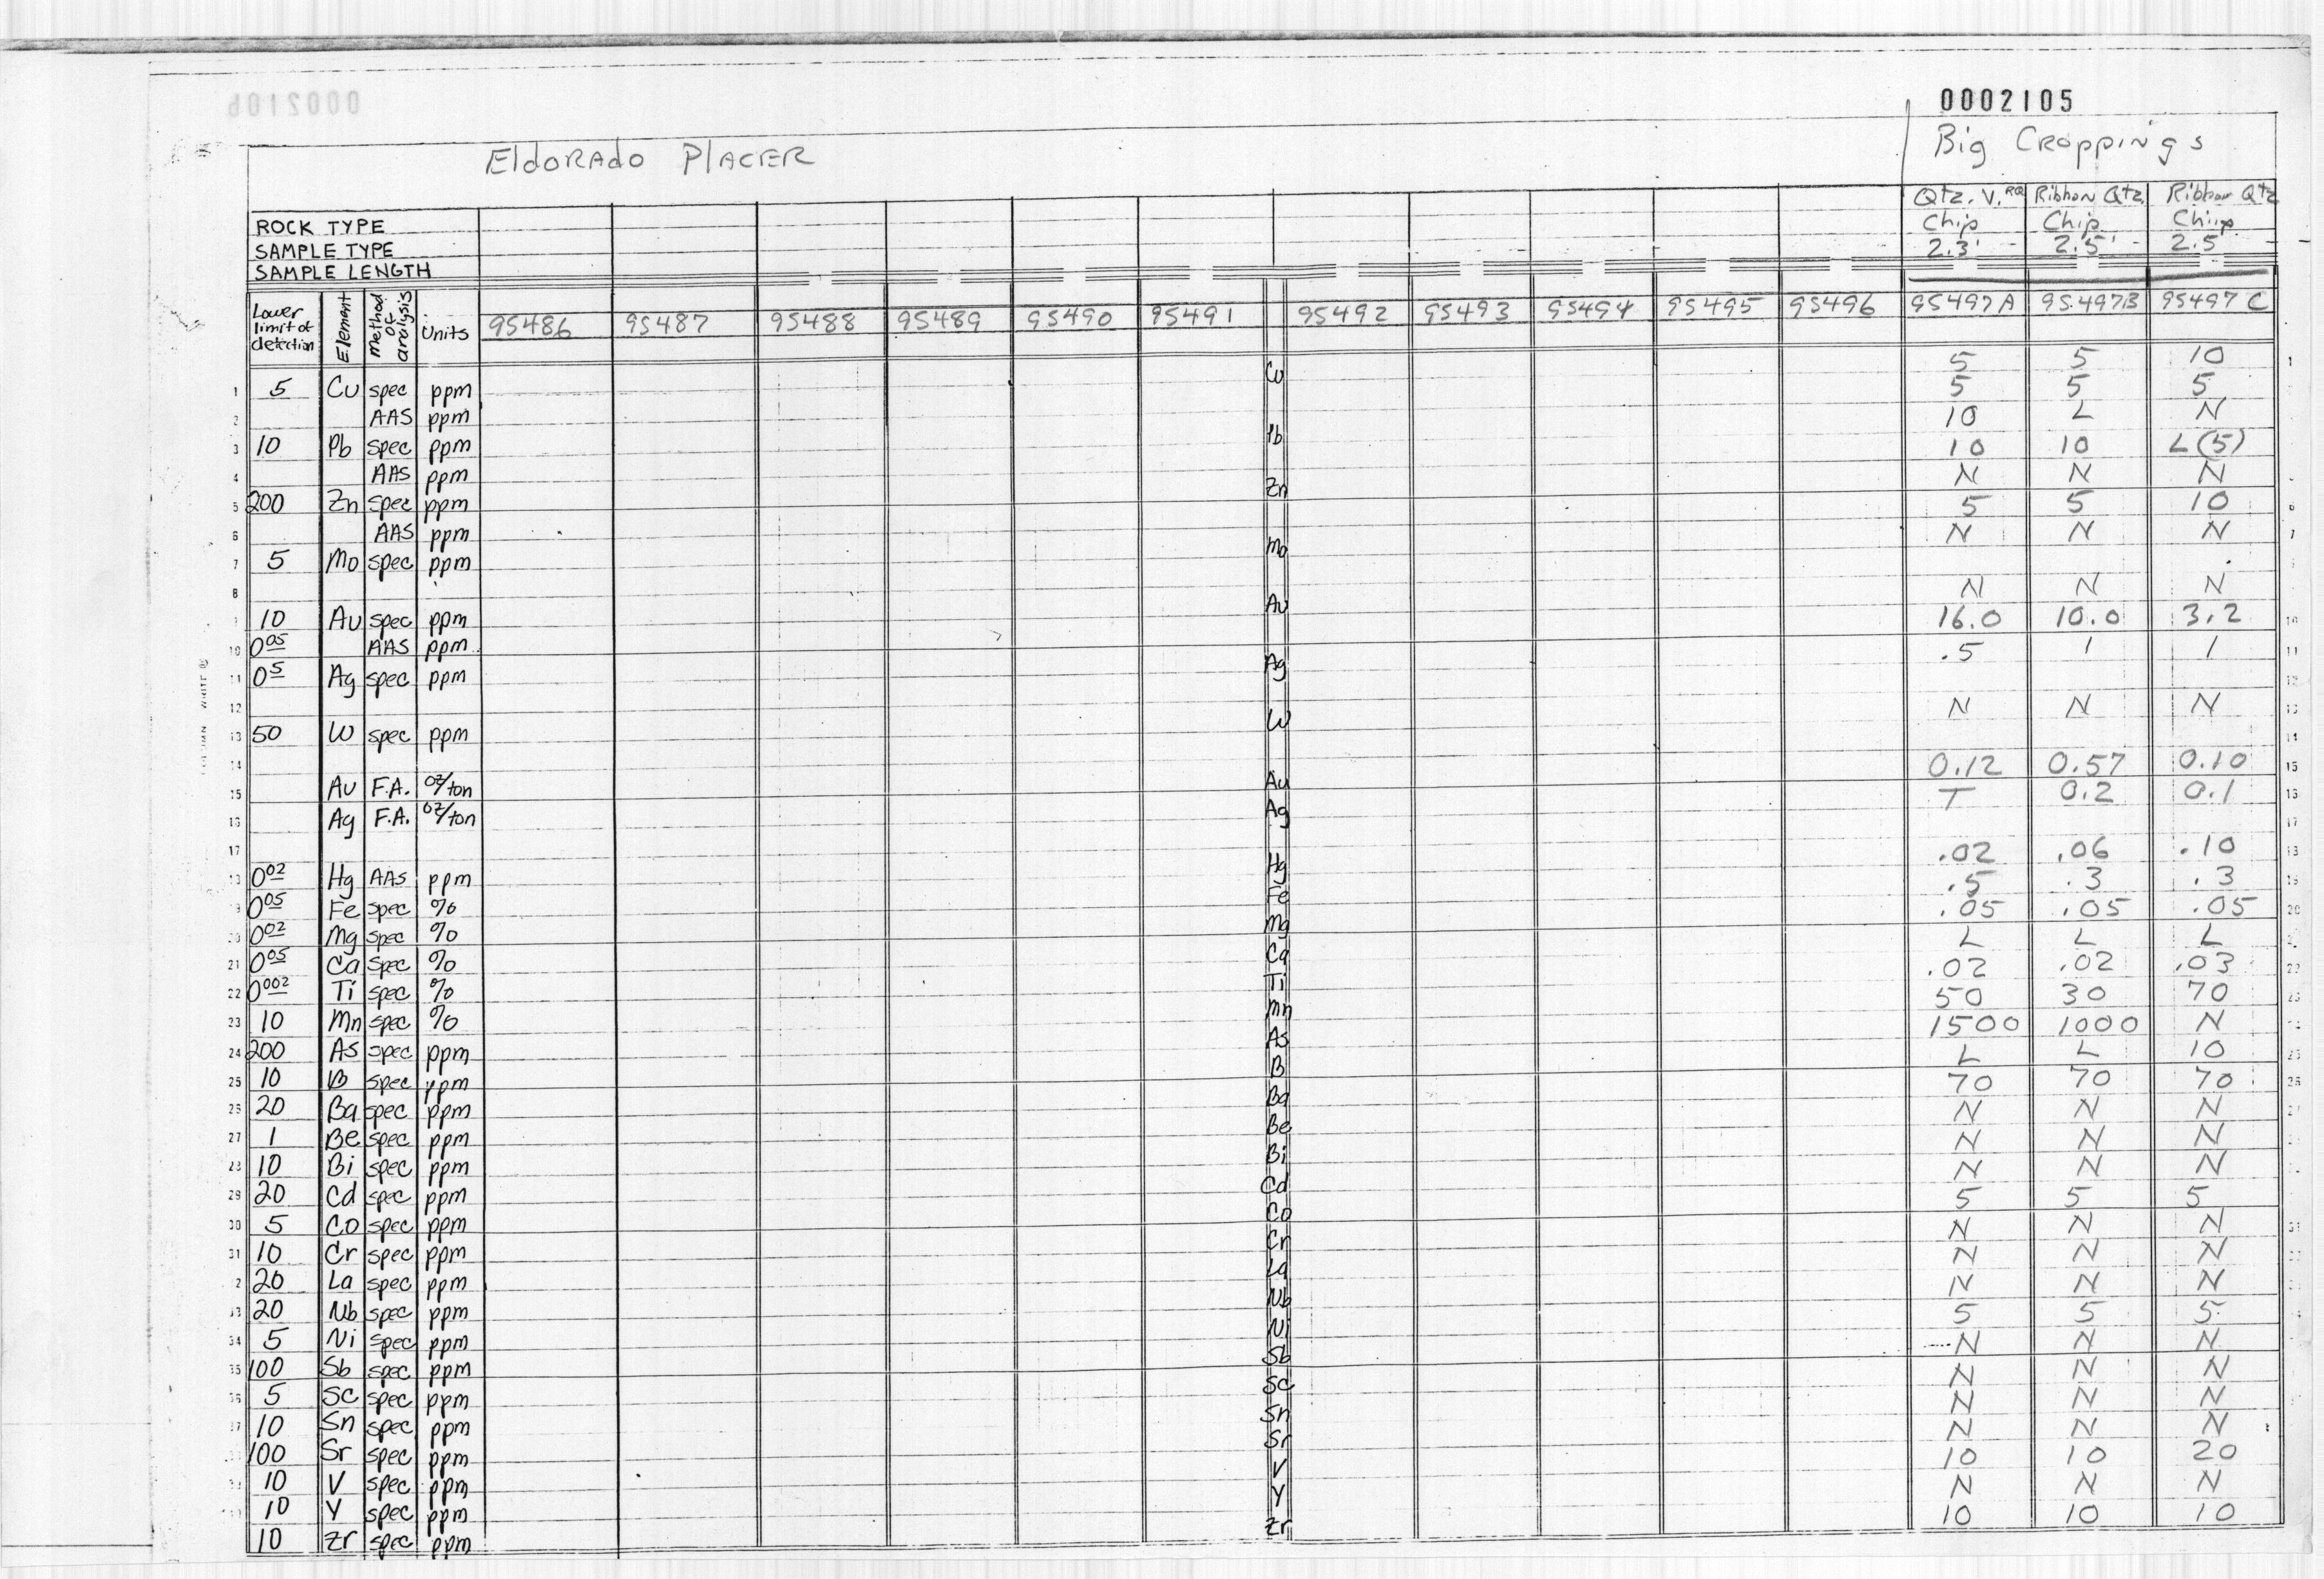 0002106
0002105
Eldorado Placer
Big Croppings
ROCK TYPE Qtz. V. RQ Ribbon Qtz Ribbon Qtz
SAMPLE TYPE Chip Chip Chip
SAMPLE LENGTH 2.3' 2.5' 2.5'
Lower limit of detection Element Method of analysis Units 95486 95487 95488 95489 95490 95491 95492 95493 95494 95495 95496 95497A 95497B 95497C
1 5 Cu spec ppm Cu 5 5 10
2 AAS ppm 5 5 5
3 10 Pb spec ppm Pb 10 L N
4 AAS ppm 10 10 L(5)
5 200 Zn spec ppm Zn N N N
6 AAS ppm 5 5 10
7 5 Mo spec ppm Mo N N N
8
10 Au spec ppm Au N N N
10 0.05 AAS ppm 16.0 10.0 3.2
11 0.5 Ag spec ppm Ag .5 1 1
12
13 50 W spec ppm W N N N
14
15 Au F.A. oz/ton Au 0.12 0.57 0.10
16 Ag F.A. oz/ton Ag T 0.2 0.1
17
18 0.02 Hg AAS ppm Hg .02 .06 .10
0.05 Fe spec % Fe .5 .3 .3
20 0.02 Mg spec % Mg .05 .05 .05
21 0.05 Ca spec % Ca L L L
22 0.002 Ti spec % Ti .02 .02 .03
23 10 Mn spec % Mn 50 30 70
24 200 As spec ppm As 1500 1000 N
25 10 B spec ppm B L L 10
26 20 Ba spec ppm Ba 70 70 70
27 1 Be spec ppm Be N N N
28 10 Bi spec ppm Bi N N N
29 20 Cd spec ppm Cd N N N
30 5 Co spec ppm Co 5 5 5
31 10 Cr spec ppm Cr N N N
20 La spec ppm La N N N
33 20 Nb spec ppm Nb N N N
34 5 Ni spec ppm Ni 5 5 5
35 100 Sb spec ppm Sb N N N
36 5 Sc spec ppm Sc N N N
37 10 Sn spec ppm Sn N N N
100 Sr spec ppm Sr N N N
10 V spec ppm V 10 10 20
10 Y spec ppm Y N N N
10 Zr spec ppm Zr 10 10 10